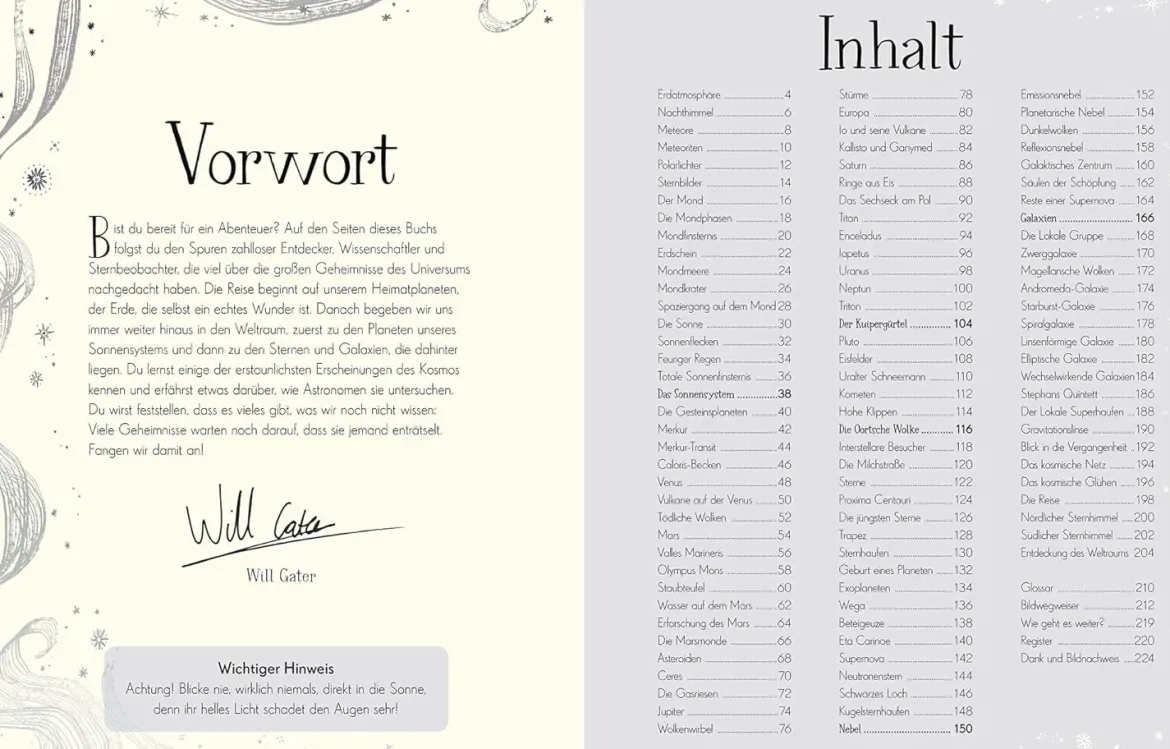 Vorwort
Bist du bereit für ein Abenteuer? Auf den Seiten dieses Buchs
folgst du den Spuren zahlloser Entdecker, Wissenschaftler und
Sternbeobachter, die viel über die großen Geheimnisse des Universums
nachgedacht haben. Die Reise beginnt auf unserem Heimatplaneten,
der Erde, die selbst ein echtes Wunder ist. Danach begeben wir uns
immer weiter hinaus in den Weltraum, zuerst zu den Planeten unseres
Sonnensystems und dann zu den Sternen und Galaxien, die dahinter
liegen. Du lernst einige der erstaunlichsten Erscheinungen des Kosmos
kennen und erfährst etwas darüber, wie Astronomen sie untersuchen.
Du wirst feststellen, dass es vieles gibt, was wir noch nicht wissen:
Viele Geheimnisse warten noch darauf, dass sie jemand enträtselt.
Fangen wir damit an!
Will Gater
Will Gater
Wichtiger Hinweis
Achtung! Blicke nie, wirklich niemals, direkt in die Sonne,
denn ihr helles Licht schadet den Augen sehr!
Inhalt
Erdatmosphäre 4
Nachthimmel 6
Meteore 8
Meteoriten 10
Polarlichter 12
Sternbilder 14
Der Mond 16
Die Mondphasen 18
Mondfinsternis 20
Erdschein 22
Mondmeere 24
Mondkrater 26
Spaziergang auf dem Mond 28
Die Sonne 30
Sonnenflecken 32
Feuriger Regen 34
Totale Sonnenfinsternis 36
Das Sonnensystem 38
Die Gesteinsplaneten 40
Merkur 42
Merkur-Transit 44
Caloris-Becken 46
Venus 48
Vulkane auf der Venus 50
Tödliche Wolken 52
Mars 54
Valles Marineris 56
Olympus Mons 58
Staubteufel 60
Wasser auf dem Mars 62
Erforschung des Mars 64
Die Marsmonde 66
Asteroiden 68
Ceres 70
Die Gasriesen 72
Jupiter 74
Wolkenwirbel 76
Stürme 78
Europa 80
Io und seine Vulkane 82
Kallisto und Ganymed 84
Saturn 86
Ringe aus Eis 88
Das Sechseck am Pol 90
Titan 92
Enceladus 94
Iapetus 96
Uranus 98
Neptun 100
Triton 102
Der Kuipergürtel 104
Pluto 106
Eisfelder 108
Uralter Schneemann 110
Kometen 112
Hohe Klippen 114
Die Oortsche Wolke 116
Interstellare Besucher 118
Die Milchstraße 120
Sterne 122
Proxima Centauri 124
Die jüngsten Sterne 126
Trapez 128
Sternhaufen 130
Geburt eines Planeten 132
Exoplaneten 134
Wega 136
Beteigeuze 138
Eta Carinae 140
Supernova 142
Neutronenstern 144
Schwarzes Loch 146
Kugelsternhaufen 148
Nebel 150
Emissionsnebel 152
Planetarische Nebel 154
Dunkelwolken 156
Reflexionsnebel 158
Galaktisches Zentrum 160
Säulen der Schöpfung 162
Reste einer Supernova 164
Galaxien 166
Die Lokale Gruppe 168
Zwerggalaxie 170
Magellansche Wolken 172
Andromeda-Galaxie 174
Starburst-Galaxie 176
Spiralgalaxie 178
Linsenförmige Galaxie 180
Elliptische Galaxie 182
Wechselwirkende Galaxien 184
Stephans Quintett 186
Der Lokale Superhaufen 188
Gravitationslinse 190
Blick in die Vergangenheit 192
Das kosmische Netz 194
Das kosmische Glühen 196
Die Reise 198
Nördlicher Sternhimmel 200
Südlicher Sternhimmel 202
Entdeckung des Weltraums 204
Glossar 210
Bildwegweiser 212
Wie geht es weiter? 219
Register 220
Dank und Bildnachweis 224